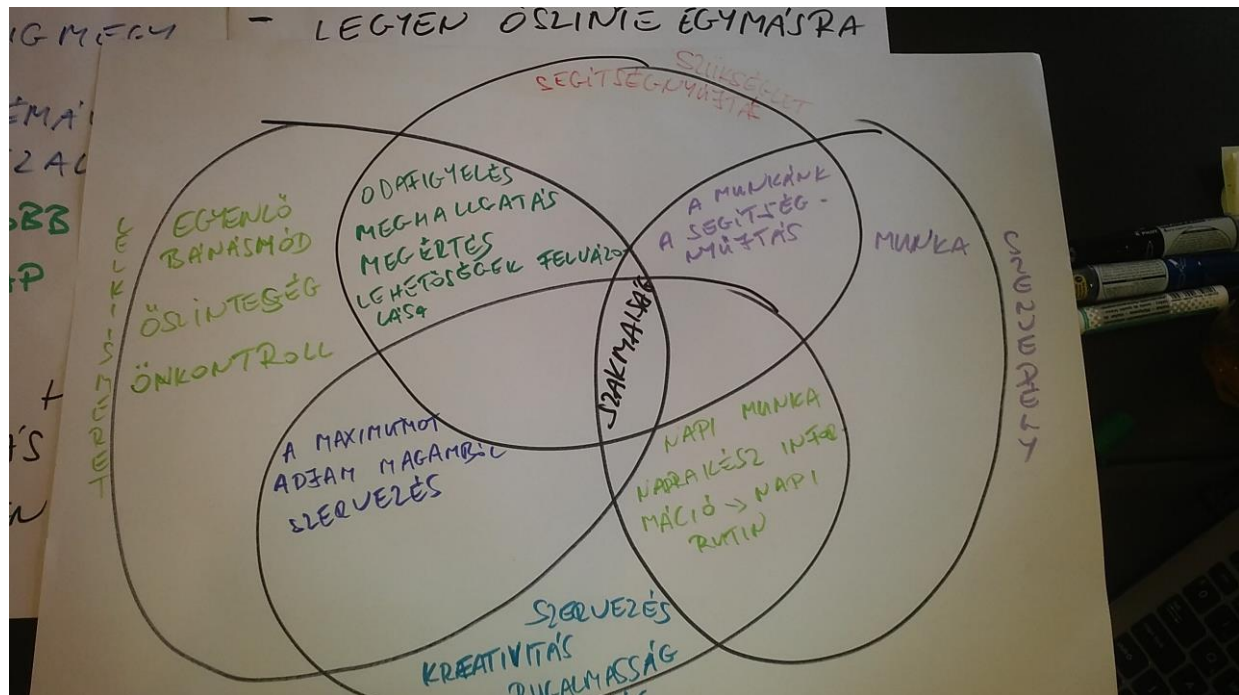 - LEGYEN ŐSZINTE EGYMÁSRA
SZÜKSÉGLET
SEGÍTSÉGNYÚJTÁS
LELKIISMERET
EGYENLŐ
BÁNÁSMÓD
ŐSZINTESSÉG
ÖNKONTROLL
ODAFIGYELÉS
MEGHALLGATÁS
MEGÉRTÉS
LEHETŐSÉGEK FELVÁZO
LÁSA
A MUNKÁNK
A SEGÍTSÉG-
NYÚJTÁS
MUNKA
SZENVEDÉLY
SZAKMAISÁG
A MAXIMUMOT
ADJAM MAGAMBÓL
SZERVEZÉS
NAPI MUNKA
NAPRAKÉSZ INFOR
MÁCIÓ -> NAPI
RUTIN
SZERVEZÉS
KREATIVITÁS
RUGALMASSÁG